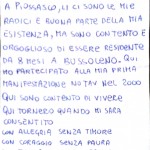 A PIOSSASCO, LI CI SONO LE MIE
RADICI E BUONA PARTE DELLA MIA
ESISTENZA, MA SONO CONTENTO E
ORGOGLIOSO DI ESSERE RESIDENTE
DA 8 MESI A BUSSOLENO. QUI
HO PARTECIPATO ALLA MIA PRIMA
MANIFESTAZIONE NO TAV NEL 2000
QUI SONO CONTENTO DI VIVERE
QUI TORNERO QUANDO MI SARA
CONSENTITO
CON ALLEGRIA SENZA TIMORE
CON CORAGGIO SENZA PAURA